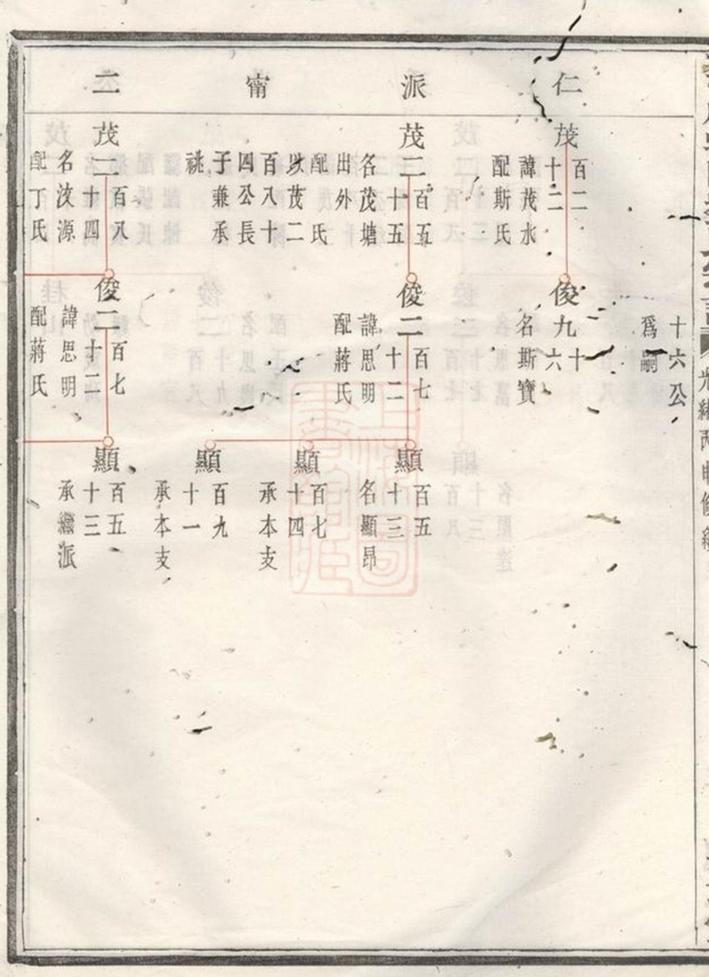 光緒丙申修
仁
派
甯
二
十六公
爲嗣
茂
百二
十二
諱茂水
配斯氏
茂二
百五
十五
各茂塘
出外
配氏
以茂二
百八十
四公長
子兼承
祧
茂二
百八
十四
名波源
配丁氏
俊九
十
六
名斯寶
俊二
百七
十二
諱思明
配蔣氏
俊二
百七
十二
諱思明
配蔣氏
顯
百五
十三
名顯昂
顯
百七
十四
承本支
顯
百九
十一
承本支
顯
百五
十三
承繼派